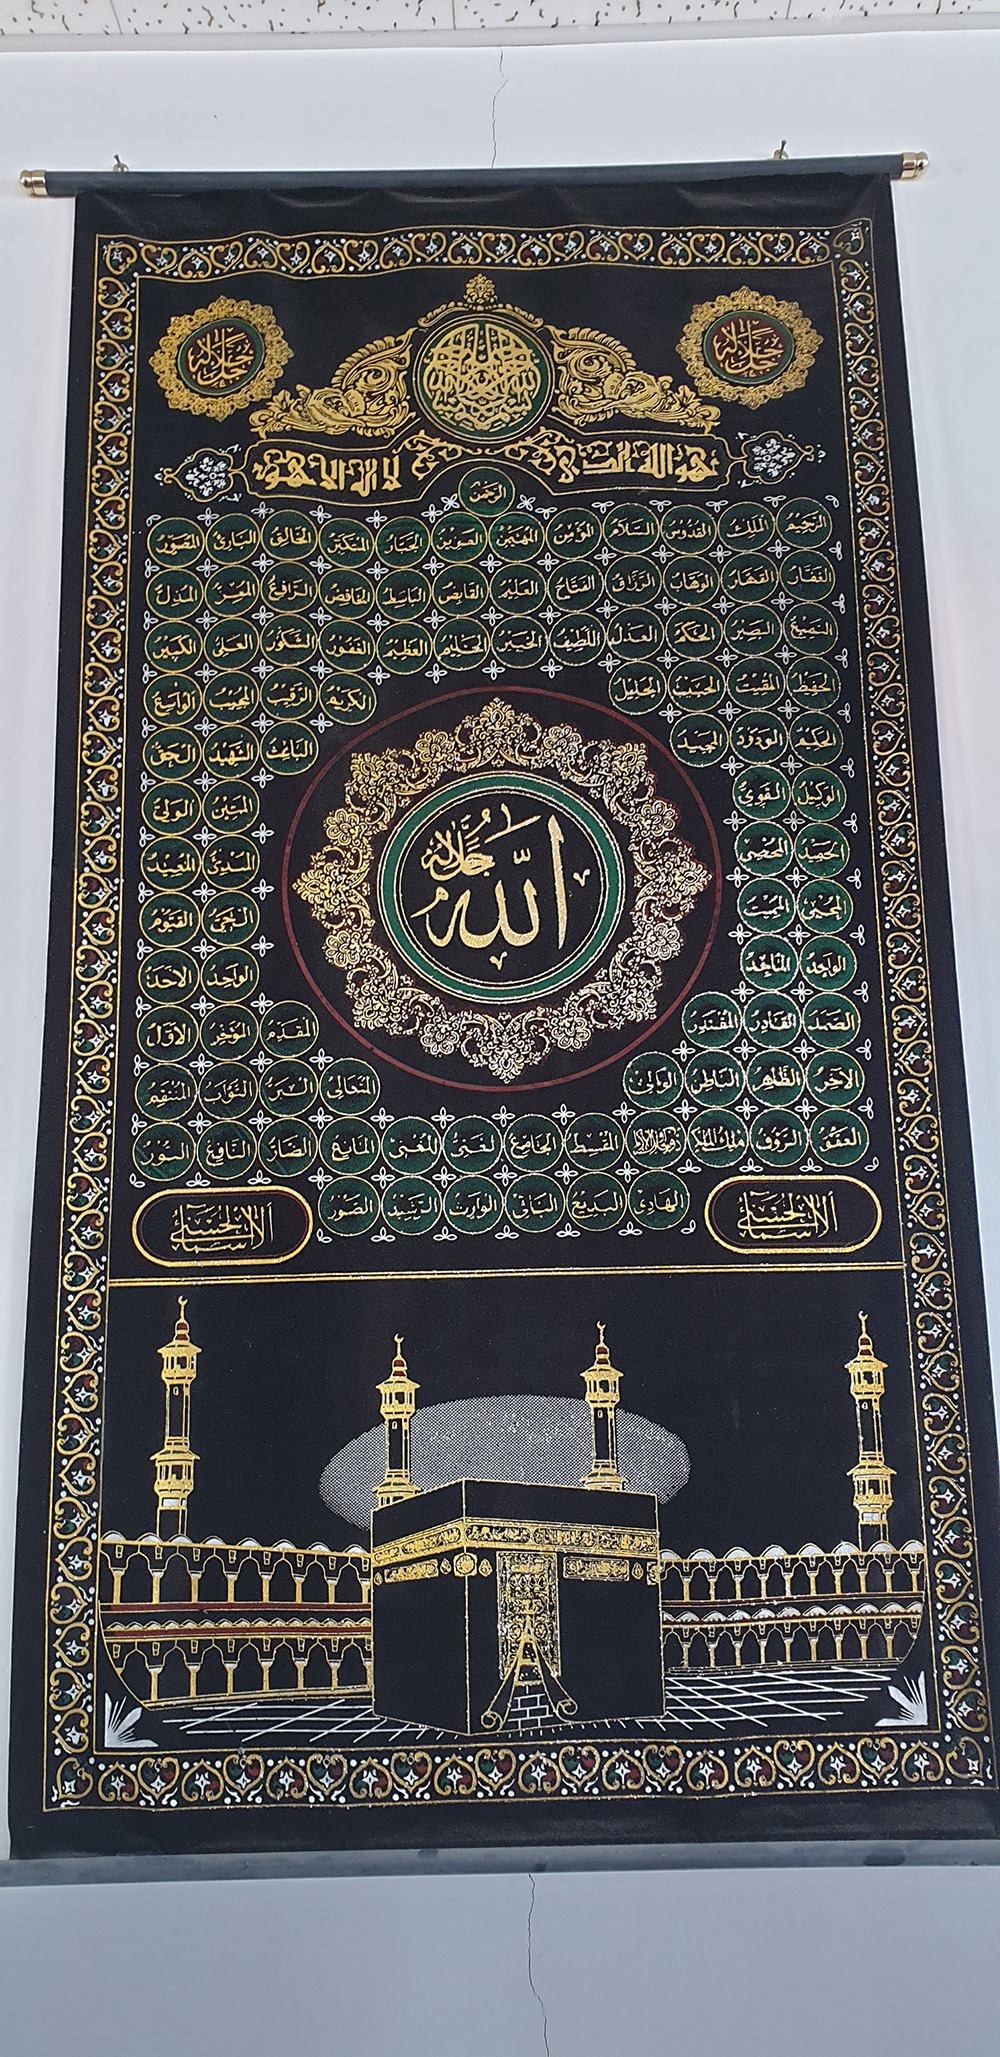 جل جلاله
جل جلاله
هو الله الذي لا إله إلا هو
الرحمن
الرحيم الملك القدوس السلام المؤمن المهيمن العزيز الجبار المتكبر الخالق البارئ المصور
الغفار القهار الوهاب الرزاق الفتاح العليم القابض الباسط الخافض الرافع المعز المذل
السميع البصير الحكم العدل اللطيف الخبير الحليم العظيم الغفور الشكور العلي الكبير
الحفيظ المقيت الحسيب الجليل الكريم الرقيب المجيب الواسع
الحكيم الودود المجيد الباعث الشهيد الحق
الوكيل القوي المتين الولي
الحميد المحصي المبدئ المعيد
المحيي المميت الحي القيوم
الواجد الماجد الواحد الاحد
الصمد القادر المقتدر المقدم المؤخر الاول
الله جل جلاله
الآخر الظاهر الباطن الوالي المتعالي البر التواب المنتقم
العفو الرؤف مالك الملك المقسط الجامع الغني المغني المانع الضار النافع النور
الهادي البديع الباقي الوارث الرشيد الصبور
الأسماء الحسنى
الأسماء الحسنى